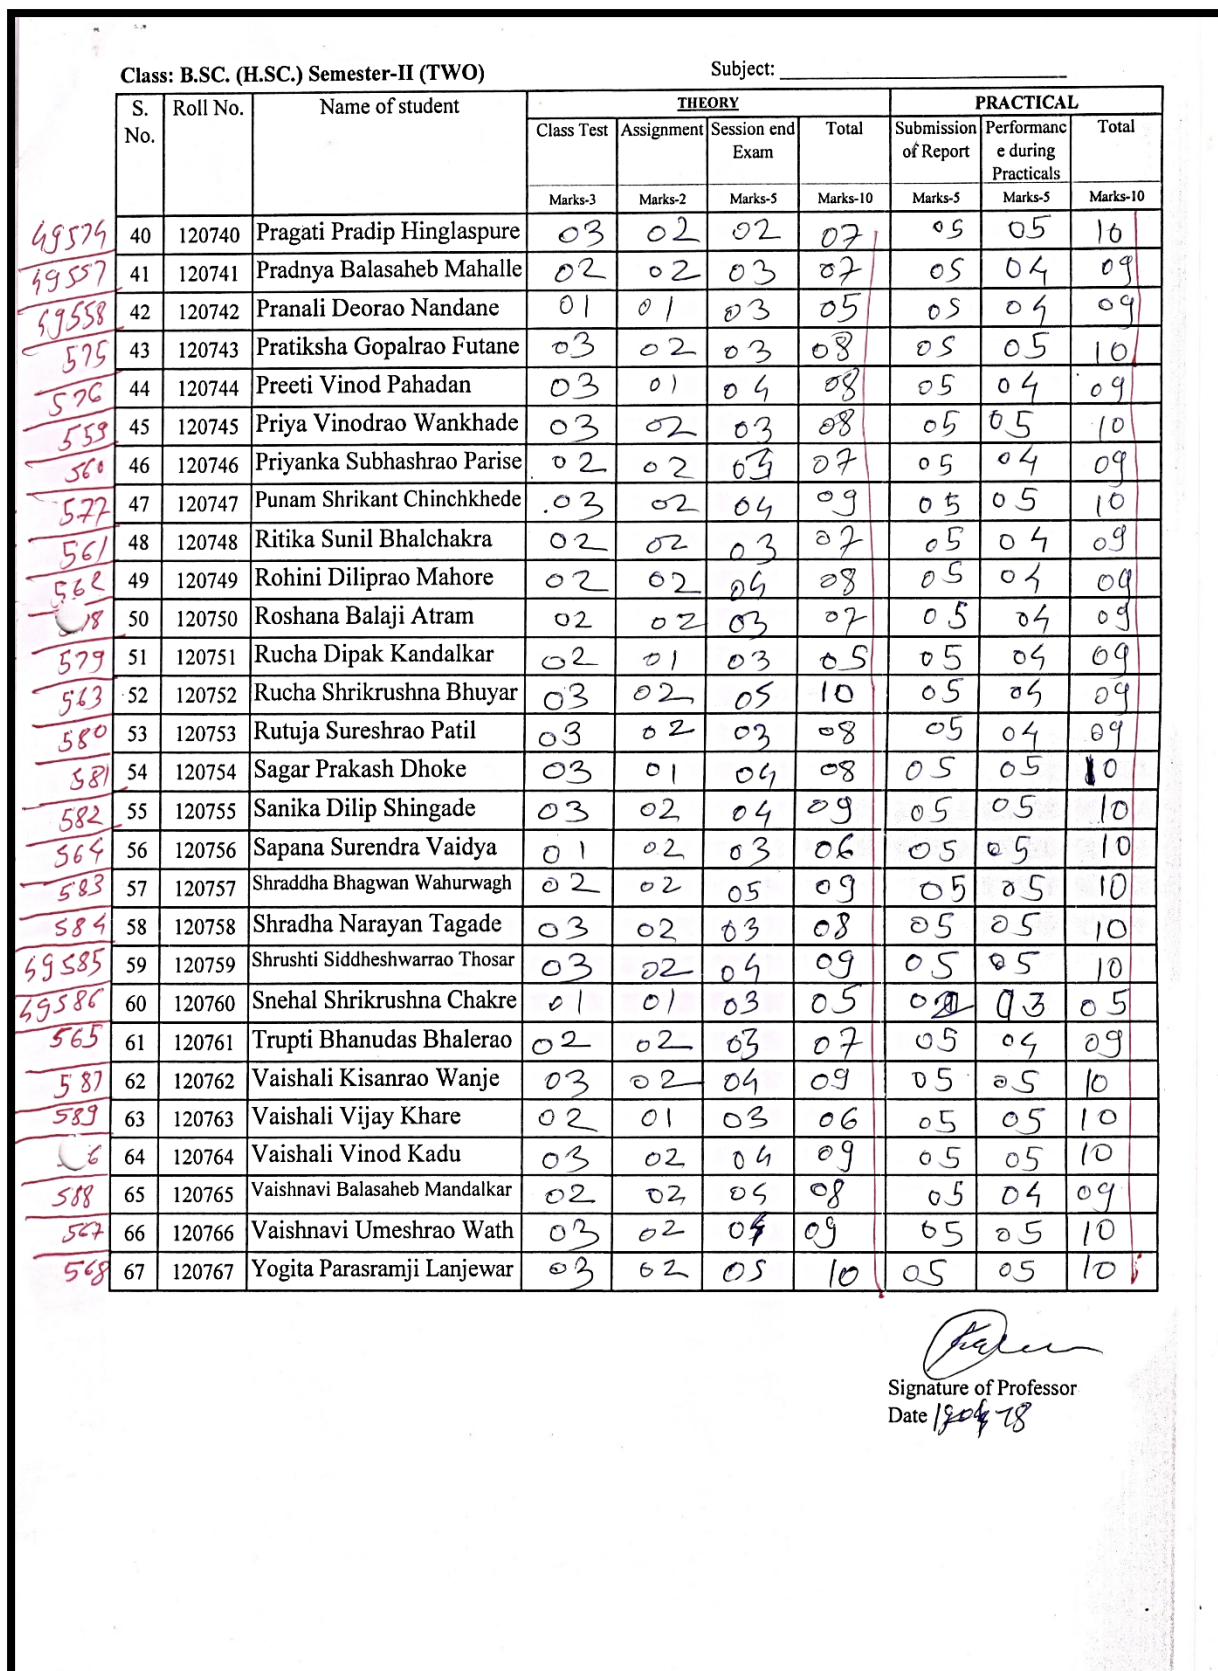 Class: B.SC. (H.SC.) Semester-II (TWO) Subject:
S. No. Roll No. Name of student THEORY PRACTICAL
Class Test Assignment Session end Exam Total Submission of Report Performance during Practicals Total
Marks-3 Marks-2 Marks-5 Marks-10 Marks-5 Marks-5 Marks-10
49574 40 120740 Pragati Pradip Hinglaspure 03 02 02 07 05 05 10
49557 41 120741 Pradnya Balasaheb Mahalle 02 02 03 07 05 04 09
49558 42 120742 Pranali Deorao Nandane 01 01 03 05 05 04 09
575 43 120743 Pratiksha Gopalrao Futane 03 02 03 08 05 05 10
576 44 120744 Preeti Vinod Pahadan 03 01 04 08 05 04 09
559 45 120745 Priya Vinodrao Wankhade 03 02 03 08 05 05 10
560 46 120746 Priyanka Subhashrao Parise 02 02 03 07 05 04 09
577 47 120747 Punam Shrikant Chinchkhede 03 02 04 09 05 05 10
561 48 120748 Ritika Sunil Bhalchakra 02 02 03 07 05 04 09
562 49 120749 Rohini Diliprao Mahore 02 02 04 08 05 04 09
50 120750 Roshana Balaji Atram 02 02 03 07 05 04 09
579 51 120751 Rucha Dipak Kandalkar 02 01 03 05 05 04 09
563 52 120752 Rucha Shrikrushna Bhuyar 03 02 05 10 05 04 09
580 53 120753 Rutuja Sureshrao Patil 03 02 03 08 05 04 09
581 54 120754 Sagar Prakash Dhoke 03 01 04 08 05 05 10
582 55 120755 Sanika Dilip Shingade 03 02 04 09 05 05 10
564 56 120756 Sapana Surendra Vaidya 01 02 03 06 05 05 10
583 57 120757 Shraddha Bhagwan Wahurwagh 02 02 05 09 05 05 10
584 58 120758 Shradha Narayan Tagade 03 02 03 08 05 05 10
49585 59 120759 Shrushti Siddheshwarrao Thosar 03 02 04 09 05 05 10
49586 60 120760 Snehal Shrikrushna Chakre 01 01 03 05 02 03 05
565 61 120761 Trupti Bhanudas Bhalerao 02 02 03 07 05 04 09
587 62 120762 Vaishali Kisanrao Wanje 03 02 04 09 05 05 10
589 63 120763 Vaishali Vijay Khare 02 01 03 06 05 05 10
64 120764 Vaishali Vinod Kadu 03 02 04 09 05 05 10
588 65 120765 Vaishnavi Balasaheb Mandalkar 02 02 04 08 05 04 09
567 66 120766 Vaishnavi Umeshrao Wath 03 02 04 09 05 05 10
568 67 120767 Yogita Parasramji Lanjewar 03 02 05 10 05 05 10
Signature of Professor
Date